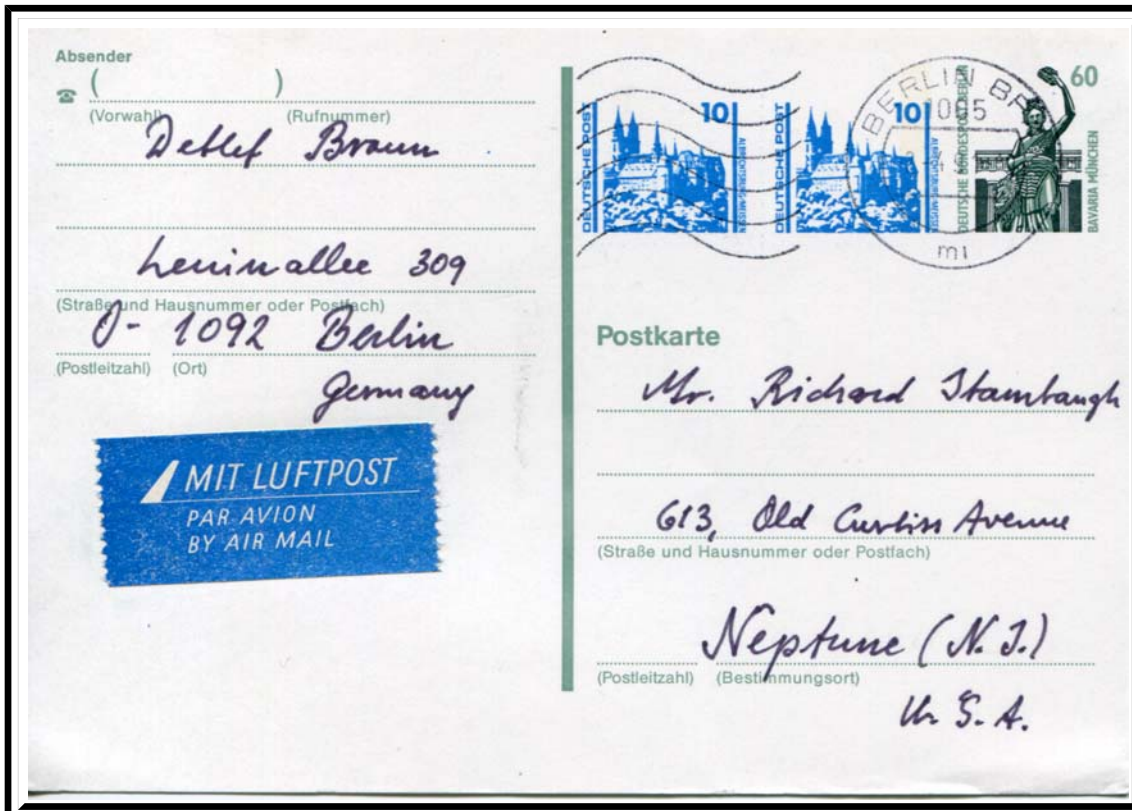 Absender
( )
(Vorwahl) (Rufnummer)
Detlef Braun
Leninallee 309
(Straße und Hausnummer oder Postfach)
O- 1092 Berlin
(Postleitzahl) (Ort)
Germany
MIT LUFTPOST
PAR AVION
BY AIR MAIL
DEUTSCHE POST
10
DEUTSCHE POST
10
BERLIN
1085
mi
DEUTSCHE BUNDESPOST BERLIN
60
BAVARIA MÜNCHEN
Postkarte
Mr. Richard Stambaugh
613, Old Curtiss Avenue
(Straße und Hausnummer oder Postfach)
Neptune (N. J.)
(Postleitzahl) (Bestimmungsort)
U. S. A.